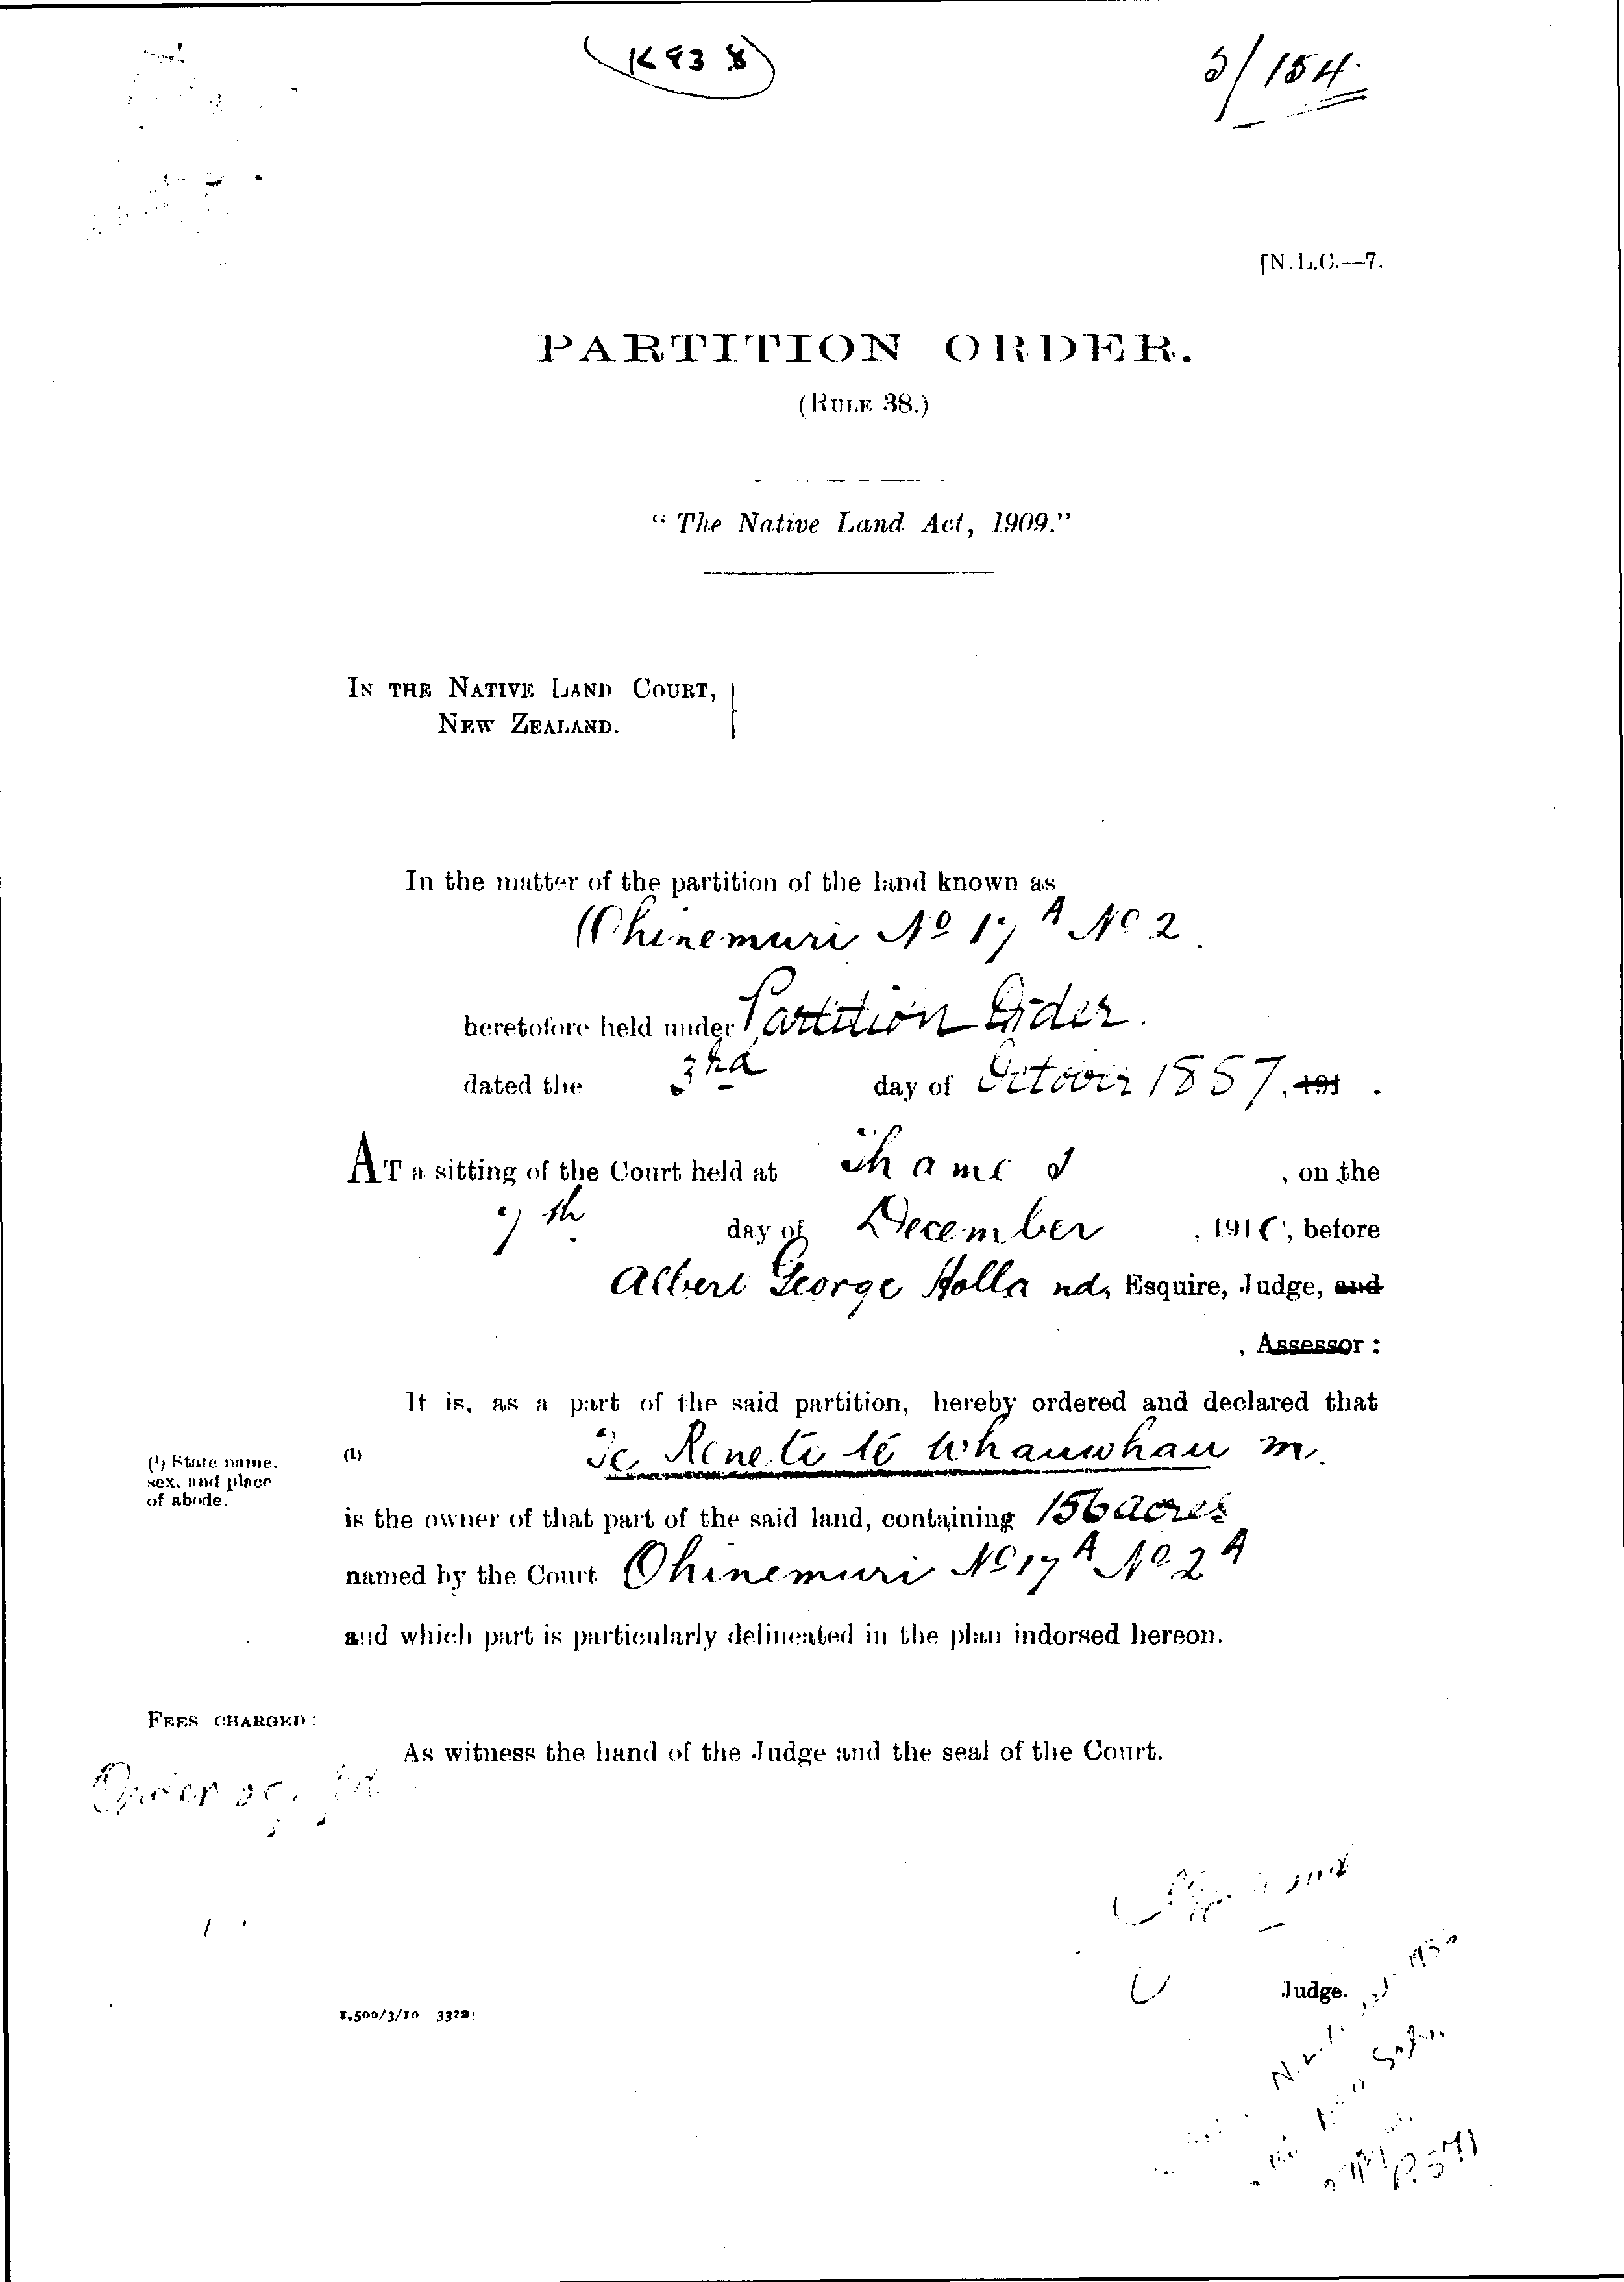 K93 8
3/154.
[N.L.C.—7.
PARTITION ORDER.
(RULE 38.)
“The Native Land Act, 1909.”
IN THE NATIVE LAND COURT,
NEW ZEALAND.
In the matter of the partition of the land known as
Ohinemuri No 17A No 2
heretofore held under Partition Order.
dated the 3rd day of October 1887. 191 .
AT a sitting of the Court held at Thames , on the
7th day of December , 191 , before
Albert George Holland, Esquire, Judge, and
, Assessor :
It is, as a part of the said partition, hereby ordered and declared that
(1) State name, sex, and place of abode.
(1) Te Reneti te Whauwhau m.
is the owner of that part of the said land, containing 156 acres
named by the Court Ohinemuri No 17A No. 2A
and which part is particularly delineated in the plan indorsed hereon.
FEES CHARGED:
As witness the hand of the Judge and the seal of the Court.
Order
Judge.
1,500/3/10 3322